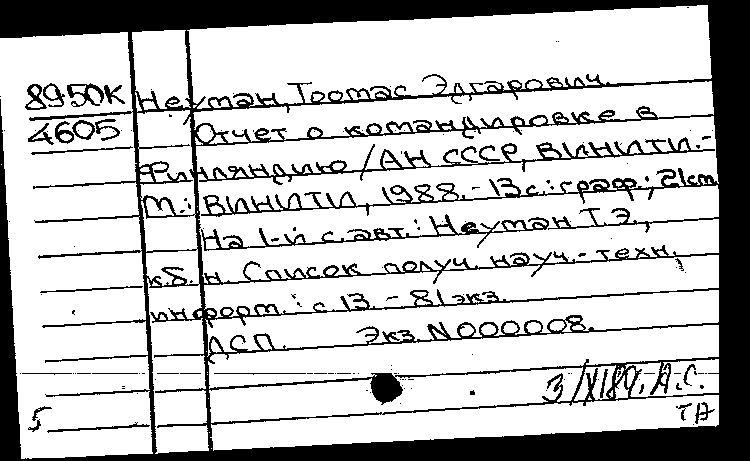 89-50К
4605
Неуман, Тоомас Эдгарович.
Отчет о командировке в
Финляндию / АН СССР, ВИНИТИ. -
М.: ВИНИТИ, 1988. - 13 с.: граф.; 21 см
На 1-й с. авт.: Неуман Т.Э.,
к.б.н. Список получ. науч.-техн.
информ.: с. 13. - 81 экз.
ДСП. Экз. N000008.
3/XI89. А.С.
5
ТА